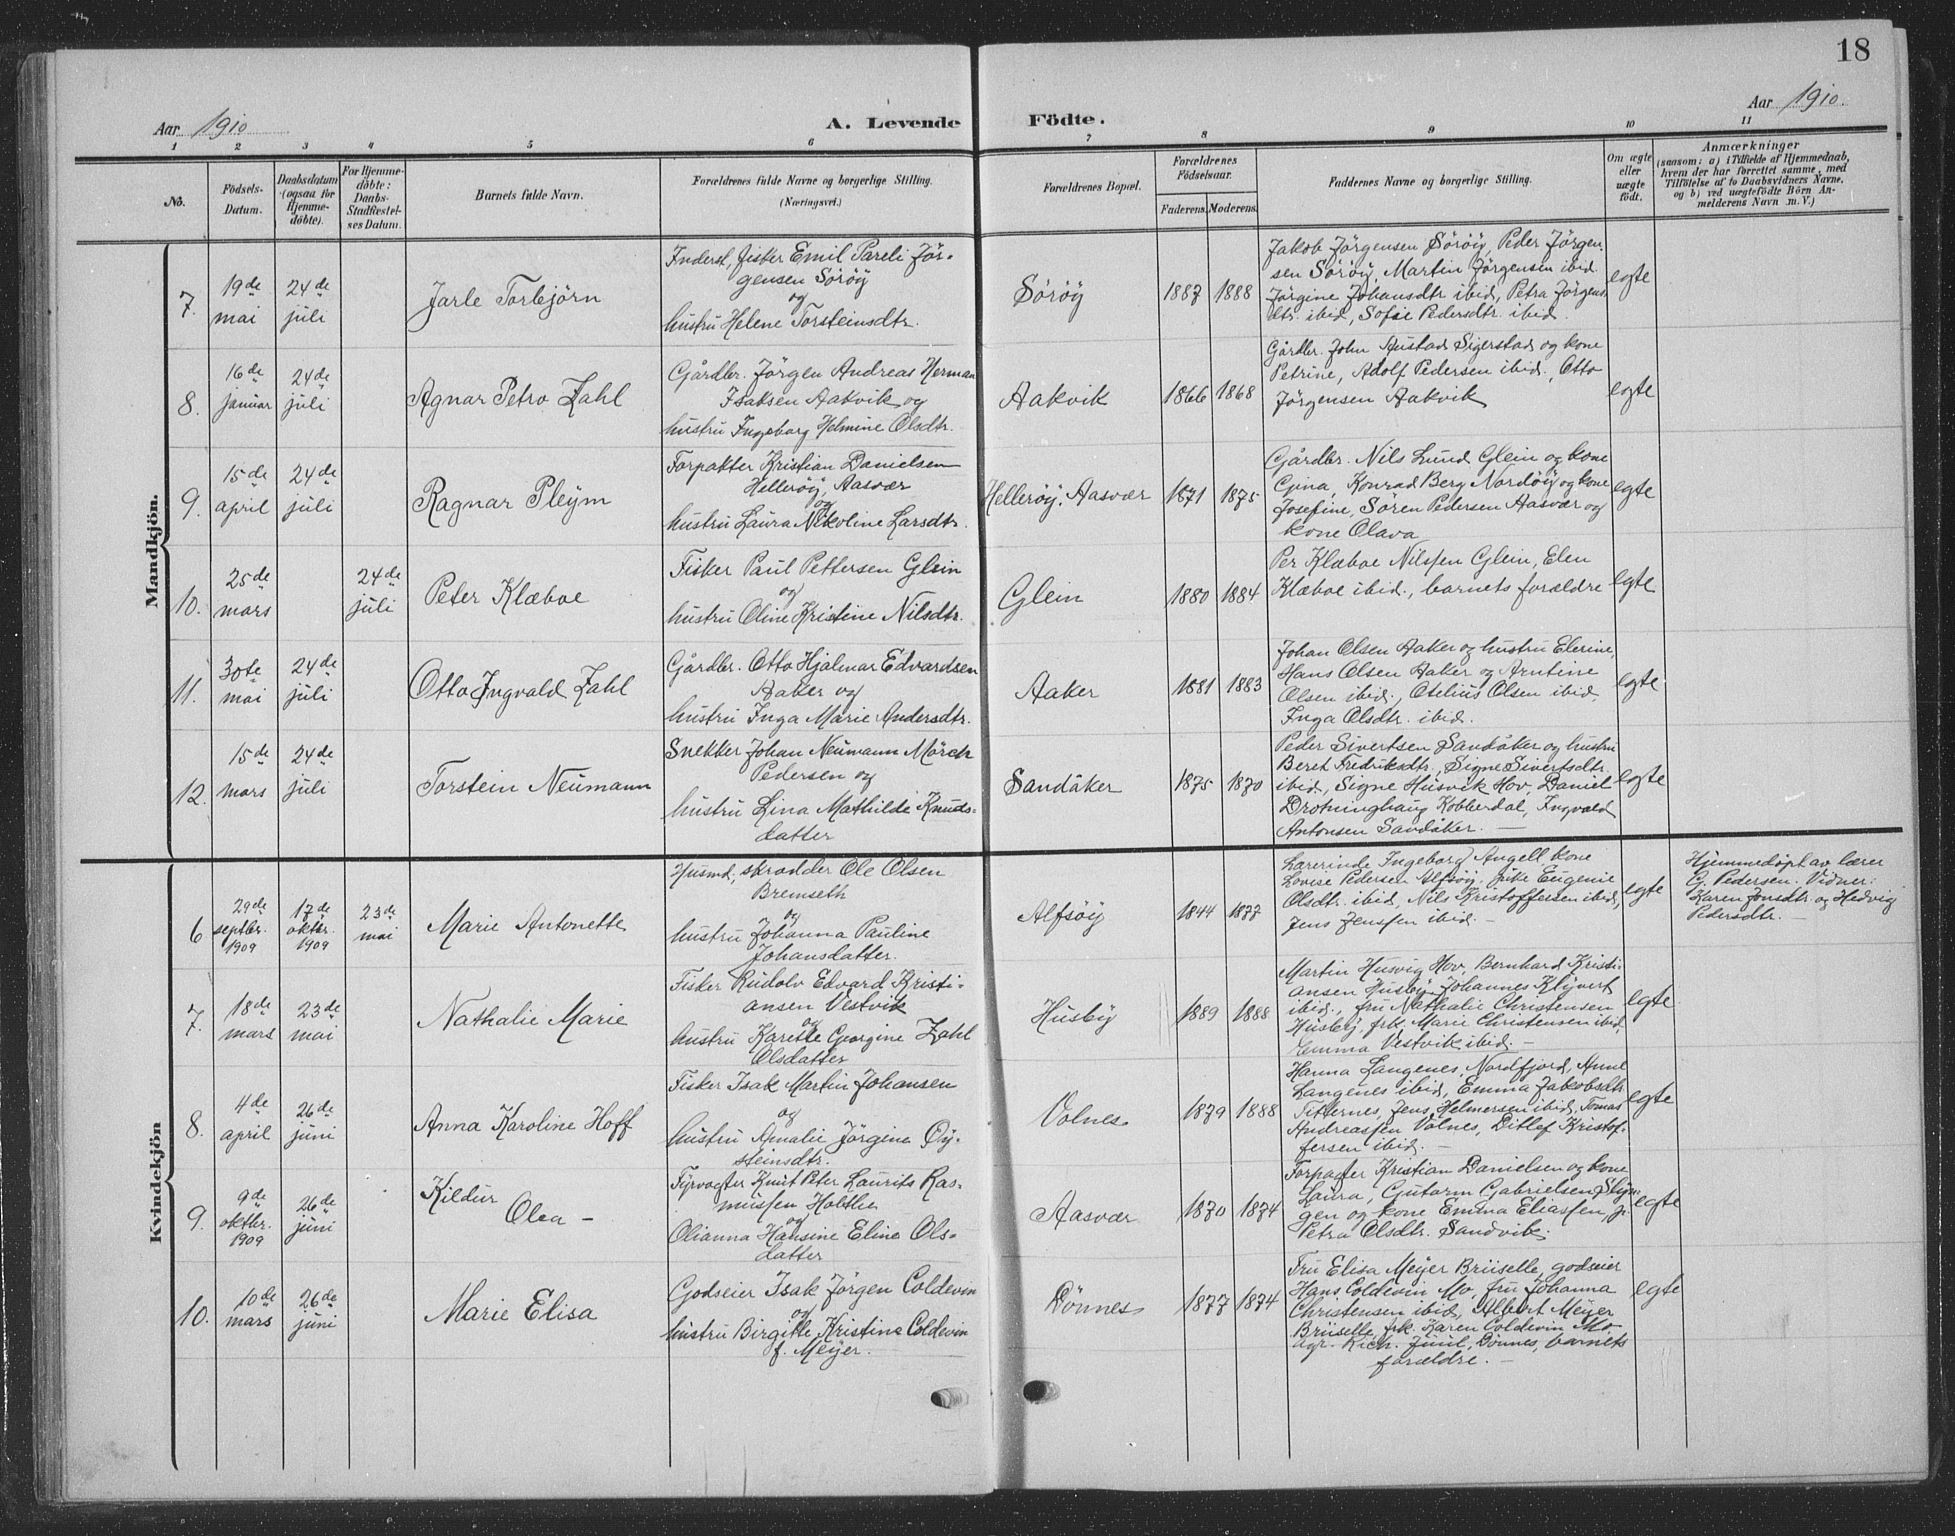 18
Aar 1910
A. Levende Födte.
Aar 1910.
1 2 3 4 5 6 7 8 9 10 11
No.
Födsels-
Datum.
Daabsdatum
(ogsaa for
Hjemme-
döbte).
For Hjemme-
döbte:
Daabs-
Stadfæstel-
ses Datum.
Barnets fulde Navn.
Forældrenes fulde Navne og borgerlige Stilling.
(Næringsvei.)
Forældrenes Bopæl.
Forældrenes
Födselsaar.
Faderens. Moderens.
Faddernes Navne og borgerlige Stilling.
Om ægte
eller
uægte
födt.
Anmærkninger
(saasom: a) i Tilfælde af Hjemmedaab,
hvem der har forrettet samme, med
Tilföielse af to Daabsvidners Navne,
og b) ved uægtefödte Börn An-
melderens Navn m. V.)
Mandkjön.
7.
19de
mai
24de
juli
Jarle Torbjörn
Inderst, fisker Emil Pareli Jör-
gensen Söröy
og
hustru Helene Torsteinsdtr.
Söröy
1887 1888
Jakob Jörgensen Söröy, Peder Jörgen-
sen Söröy, Martin Jörgensen ibid.
Jörgine Johansdtr ibid, Petra Jörgens-
dtr. ibid, Sofie Pedersdtr. ibid.
egte
8.
16de
januar
24de
juli
Agnar Petro Zahl
Gårdbr. Jörgen Andreas Herman
Isaksen Aakvik og
hustru Ingeborg Helmine Olsdtr.
Aakvik
1866 1868
Gårdbr. John Austad Sigerstad og kone
Petrine, Adolf Pedersen ibid., Otto
Jörgensen Aakvik
egte
9.
15de
april
24de
juli
Ragnar Pleym
Forpakter Kristian Danielsen
Helleröy, Aasvær
og
hustru Laura Nikoline Larsdtr.
Helleröy, Aasvær
1871 1875
Gårdbr. Nils Lund Glein og kone
Gina, Konrad Berg Nordöy og kone
Josefine, Sören Pedersen Aasvær og
kone Olava
egte
10.
25de
mars
24de
juli
Peter Klæboe
Fisker Paul Pettersen Glein
og
hustru Oline Kristine Nilsdtr.
Glein
1880 1884
Per Klæboe Nilssen Glein, Elen
Klæboe ibid., barnets foræ̈ldre
egte
11.
30te
mai
24de
juli
Otto Ingvald Zahl
Gårdbr. Otto Hjalmar Edvardsen
Aaker og
hustru Inga Marie Andersdtr.
Aaker
1881 1883
Johan Olsen Aaker og hustru Elerine,
Hans Olsen Aaker og Arntine
Olsen ibid., Otelius Olsen ibid,
Inga Olsdtr. ibid.
egte
12.
15de
mars
24de
juli
Torstein Neumann
Snekker Johan Neumann Mörch
Pedersen og
hustru Lina Mathilde Knuds-
datter
Sandåker
1875 1870
Peder Sivertsen Sandåker og hustru
Beret Fredriksdtr., Signe Sivertsdtr.
ibid, Signe Husvik Hov, Daniel
Dronninghaug Kobberdal, Ingvald
Antonsen Sandåker. —
egte
Kvindekjön
6
29de
septbr.
1909
17de
oktbr.
1909
23de
mai
Marie Antonette
Husmd, skrædder Ole Olsen
Bremseth
og
hustru Johanna Pauline
Johansdatter.
Alfsöy
1844 1877
Lærerinde Ingeborg Angell kone
Lovise Pedersen Alfsöy, pike Eugenie
Olsdtr. ibid, Nils Kristoffersen ibid,
Jens Jenssen ibid. —
egte
Hjemmedöpt av lærer
G. Pedersen. Vidner:
Karen Jonsdtr. og Hedvig
Pedersdtr. —
7.
18de
mars
23de
mai
Nathalie Marie
Fisker Rudolv Edvard Kristi-
ansen Vestvik
og
hustru Karette Georgine Zahl
Olsdatter
Husby
1889 1888
Martin Husvig Hov, Bernhard Kristi-
ansen Husby, Johannes Klyvert
ibid., fru Nathalie Christensen
Husby, frk. Marie Christensen ibid,
Emma Vestvik ibid. —
egte
8.
4de
april
26de
juni
Anna Karoline Hoff
Fisker Isak Martin Johansen
og
hustru Amalie Jörgine Öy-
steinsdtr.
Volnes
1879 1888
Hanna Langenes, Nordfjord, Anne
Langenes ibid, Emma Jakobsdtr
Titternes, Jens Helmersen ibid, Tomas
Andreassen Volnes, Ditlef Kristof-
fersen ibid. —
egte
9.
9de
oktbr.
1909
26de
juni
Kildur
Olea —
Fyrvogter Knut Peter Laurits Ras-
mussen Holthe
og
Olianna Hansine Eline Ols-
datter
Aasvær
1870 1874
Forpagter Kristian Danielsen og kone
Laura, Gutorm Gabrielsen Slyn-
gen og kone Emma Eliassen, p.
Petra Olsdtr. Sandvik.
egte
10.
10de
mars
26de
juni
Marie Elisa
Godseier Isak Jörgen Coldevin
og
hustru Birgitte Kristine Coldevin
f. Meyer.
Dönnes
1877 1874
Fru Elisa Meyer Brüselle, godseier
Hans Coldevin Mo, fru Johanna
Christensen ibid, Albert Meyer
Brüselle, frk. Karen Coldevin Mo,
agr. Rich. Juul, Dönnes, barnets
forældre. —
egte